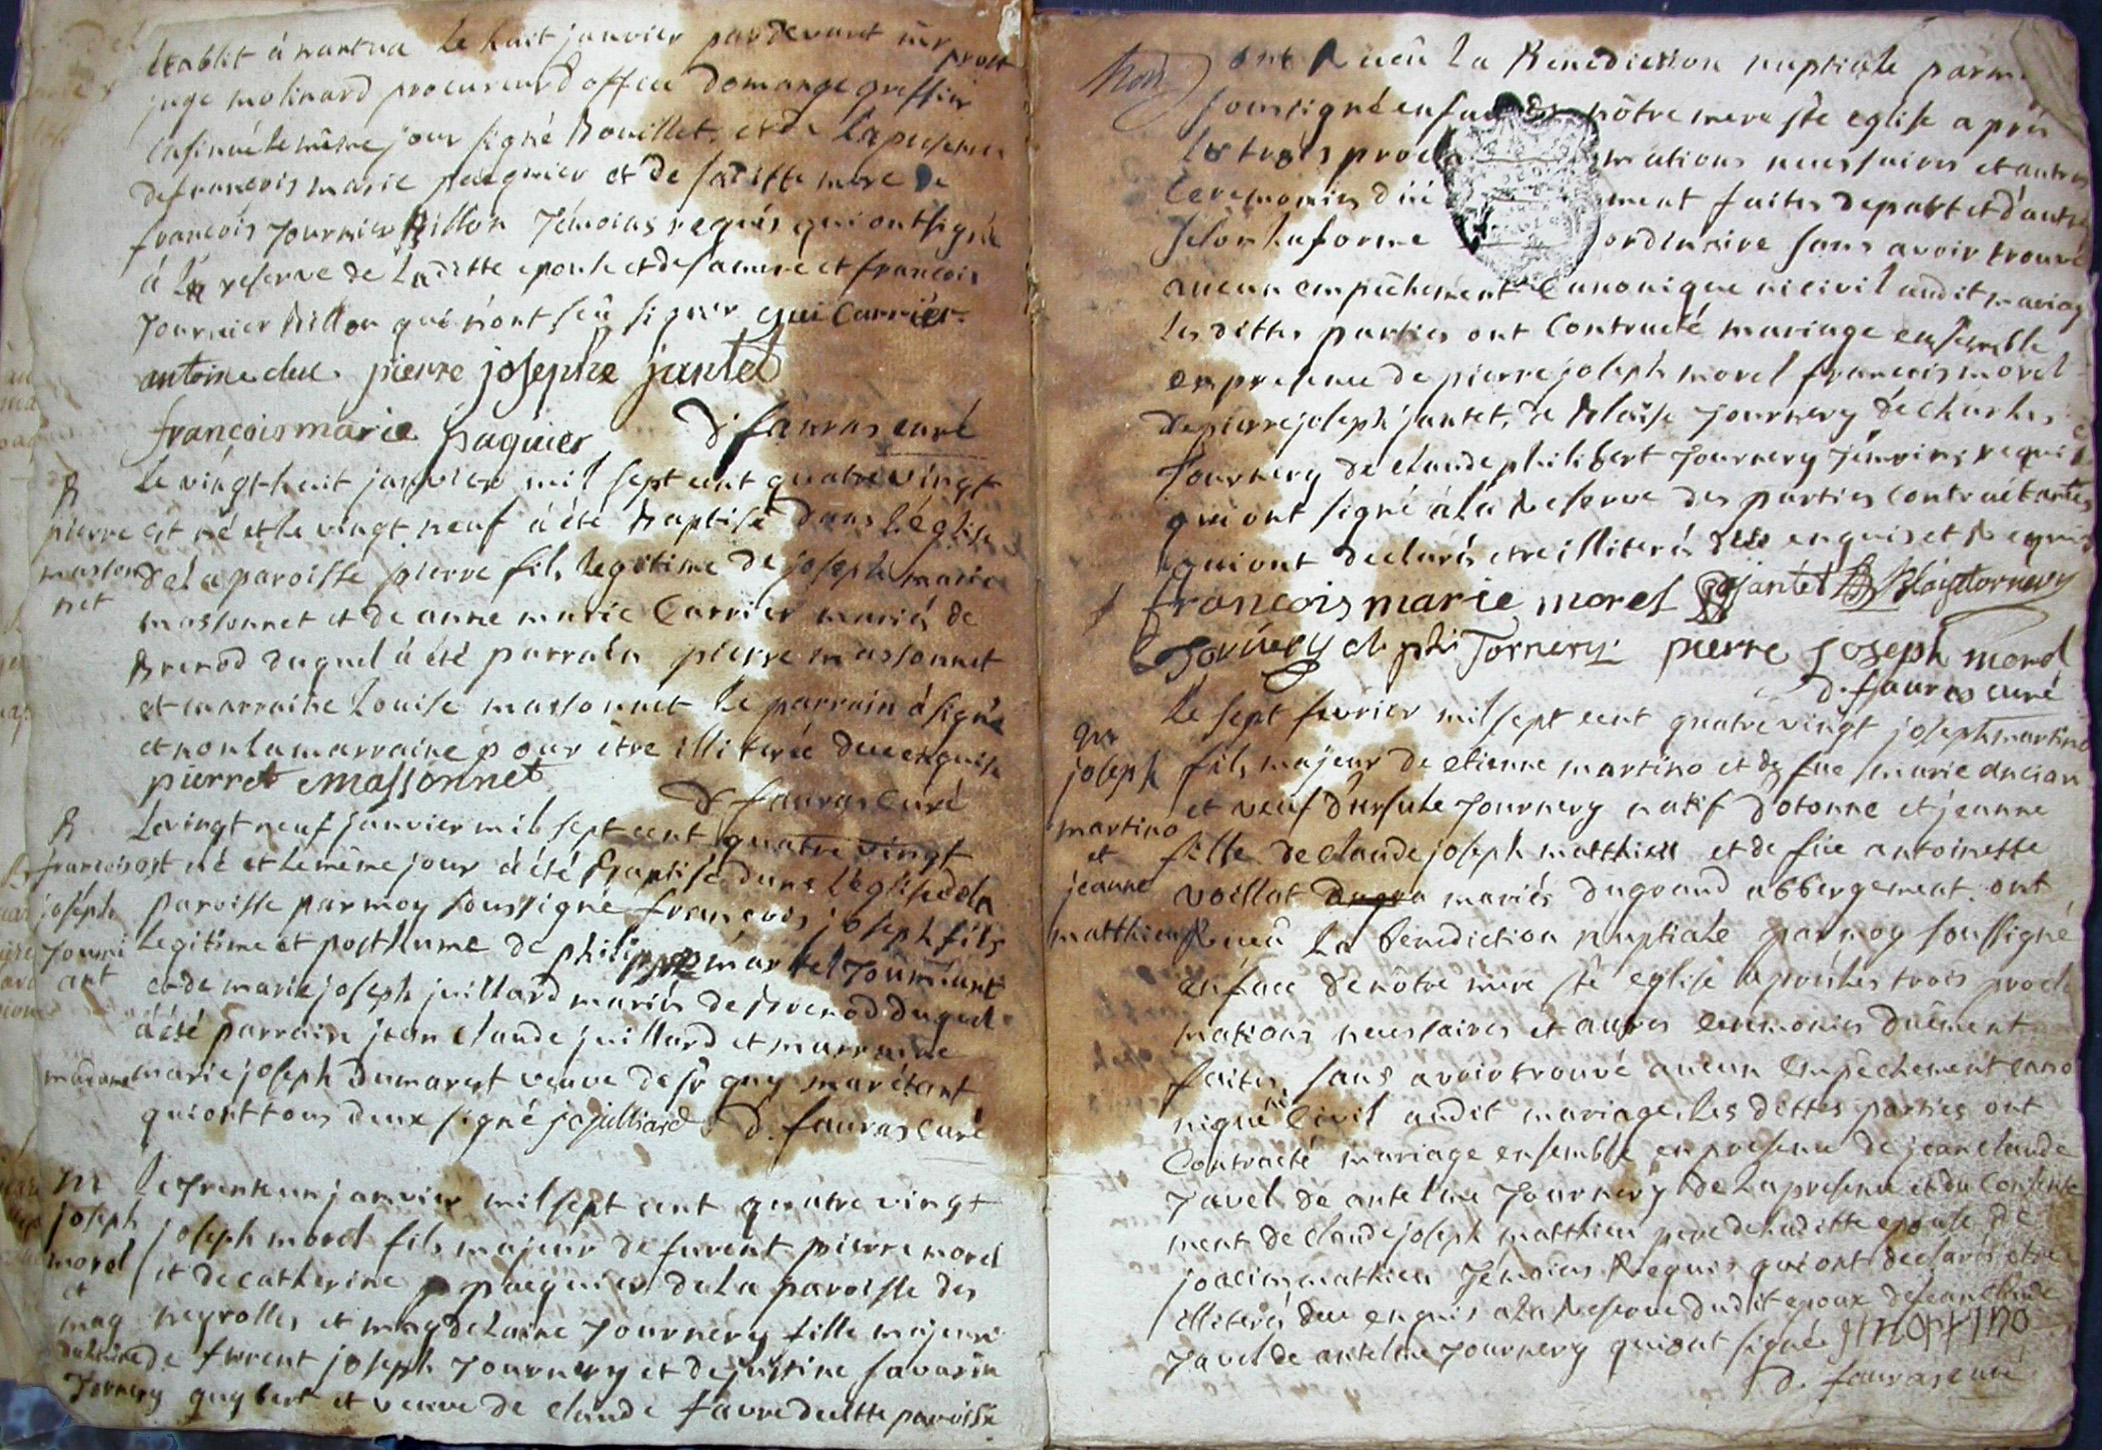 établit à nantua le huit janvier pardevant mr prost
juge molinard procureur d'office domange greffier
insinué le même jour signé Bouillet, et de la presence
de françois marie paequier et de saditte mere de
françois Journier Billon Témoins requis qui ont signé
à la reserve de laditte epouse et de sa mere et françois
Journier Billon qui n'ont sçû signer gui Carrier
antoine duc pierre josephe jantet
françois marie paquier D. fauras curé
B
pierre
massonnet
le vingt-huit janvier mil sept cent quatre vingt
est né et le vingt neuf a été Baptisé dans l'église
de la paroisse pierre fils legitime de joseph marie
massonnet et de anne marie Carrier mariés de
Brenod duquel a été parrain pierre massonnet
et marraine Louise massonnet le parrain a signé
et non la marraine pour être illiterée due enquise
pierre massonnet
D. fauras Curé
B
francois
joseph
Journiant
Le vingt neuf janvier mil sept cent quatre vingt
est né et le même jour a été Baptisé dans l'église de la
paroisse par moy soussigné françois joseph fils
legitime et posthume de philippe martel Journiant
et de marie joseph juillard mariés de Brenod duquel
a été parrain jean claude juillard et marraine
marie joseph Dumarest veuve de sr guy marétant
qui ont tous deux signé jcjulliard D. fauras Curé
M
joseph
morel
et
magdelaine
Tornery
le Trente un janvier mil sept cent quatre vingt
joseph morel fils majeur de furent pierre morel
et de catherine paequier de la paroisse des
neyrolles et magdelaine Journery fille majeure
de furent joseph Journery et de justine savarin
guybert et veuve de claude favre de ditte paroisse
ont Reçeû la Benediction nuptiale par moy
soussigné en face de nôtre mere ste eglise après
les trois proclamations necessaires et autres
Ceremonies dûëment faites de part et d'autre
selon la forme ordinaire sans avoir trouvé
aucun empêchement Canonique ni civil audit mariage
les dittes parties ont Contracté mariage ensemble
en presence de pierre joseph morel françois morel
de pierre joseph jantet, de Blaise Journery de charles
Journery de claude philibert Journery Témoins requis
qui ont signé à la Reserve des parties contractantes
qui ont declarés etre illiterés dues enquis et Requis
françois marie morel pjjantet Blaytornery
C Tornery cl. phi Tornery pierre joseph morel
D. fauras curé
M
joseph
martino
et
jeanne
matthieu
Le sept fevrier mil sept cent quatre vingt joseph martino
fils majeur de etienne martino et de fue marie ancian
et veuf d'ursule Journery natif d'otonne et jeanne
fille de claude joseph matthieu et de fûe antoinette
voillat mariés du grand abbergement. ont
Reçeû la benediction nuptiale par moy soussigné
en face de nôtre mere ste eglise après les trois procla
mations necessaires et autres ceremonies duëment
faites sans avoir trouvé aucun empêchement cano
nique ni Civil audit mariage, les dittes parties ont
Contracté mariage ensemble en presence de jean claude
Javel de antelme Journery de la presence et du Consente
ment de claude joseph matthieu pere de laditte epouse de
joacim mathieu Temoins Requis qui ont declarés etre
illiterés due enquis à la Reserve dudit epoux de jean claude
Javel de antelme Journery qui ont signé jmartino
D. fauras curé